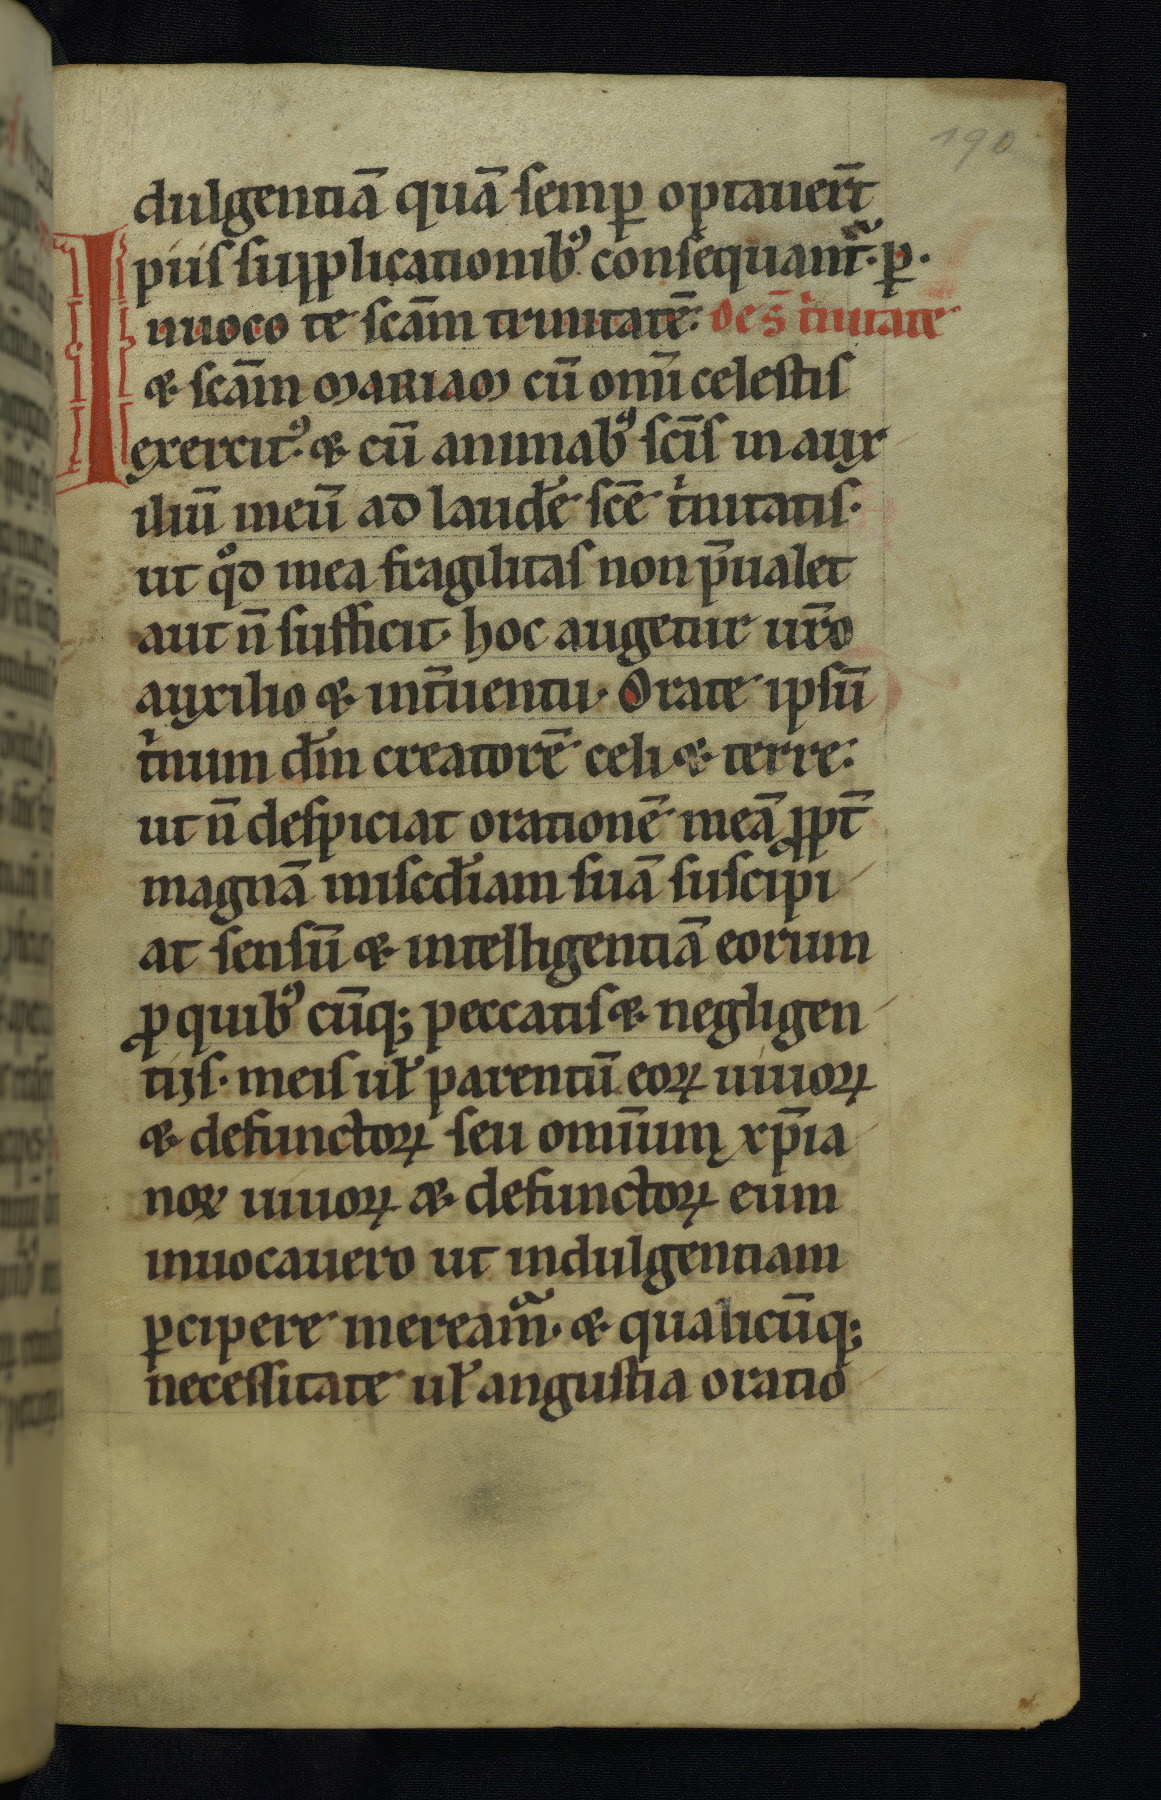 190
dulgentiā quā semꝑ optauer̄t
piis supplicationibꝰ consequant᷑· ꝑ·
Inuoco te scām trinitatē: De s̄ tͥnitate
⁊ scām MARIAM cū om̄i celestis
exercitꝰ· ⁊ cū animabꝰ scīs in aux
iliū meū ad laudē scē tͥnitatis·
ut qͦd mea fragilitas non p̄ualet
aut n̄ sufficit· hoc augetur ur̄o
auxilio ⁊ int̄uentu· Orate ipsū
tͥnum dm̄ creatorē celi ⁊ terre:
ut n̄ despiciat orationē meā ꝓpt̄
magnā miscd̄iam suā suscipi
at sensū ⁊ intelligentiā eorum
ꝓ quibꝰ cūqꝫ peccatis ⁊ negligen
tijs· meis ul̄ parentū eoꝝ uiuoꝝ
⁊ defunctoꝝ seu omīum xp̄ia
noꝝ uiuoꝝ ⁊ defunctoꝝ eum
inuocauero ut indulgentiam
ꝑcipere meream᷑· ⁊ qualicūqꝫ
necessitate ul̄ angustia oratio